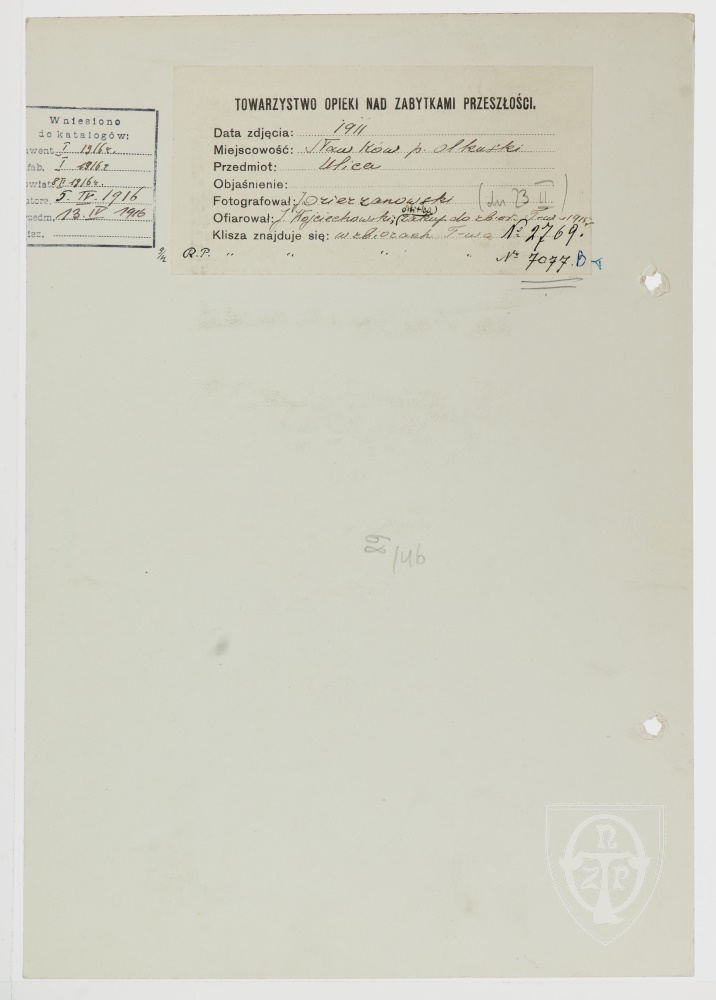 Wniesiono
do katalogów:
went. I 1916 r.
fab. I 1916 r
wiat. 1916 r.
utora. 5. IV. 1916
rzedm. 13. IV 1916
TOWARZYSTWO OPIEKI NAD ZABYTKAMI PRZESZŁOŚCI.
Data zdjęcia: 1911
Miejscowość: Sławków p. Olkuski
Przedmiot: Ulica
Objaśnienie:
Fotografował: Dzierzanowski
Ofiarował: J. Wojciechowski do zbior. T-wa 1915
Klisza znajduje się: w zbiorach T-wa № 2769.
R.P. " " " " № 7077. B
89
/
TONZP